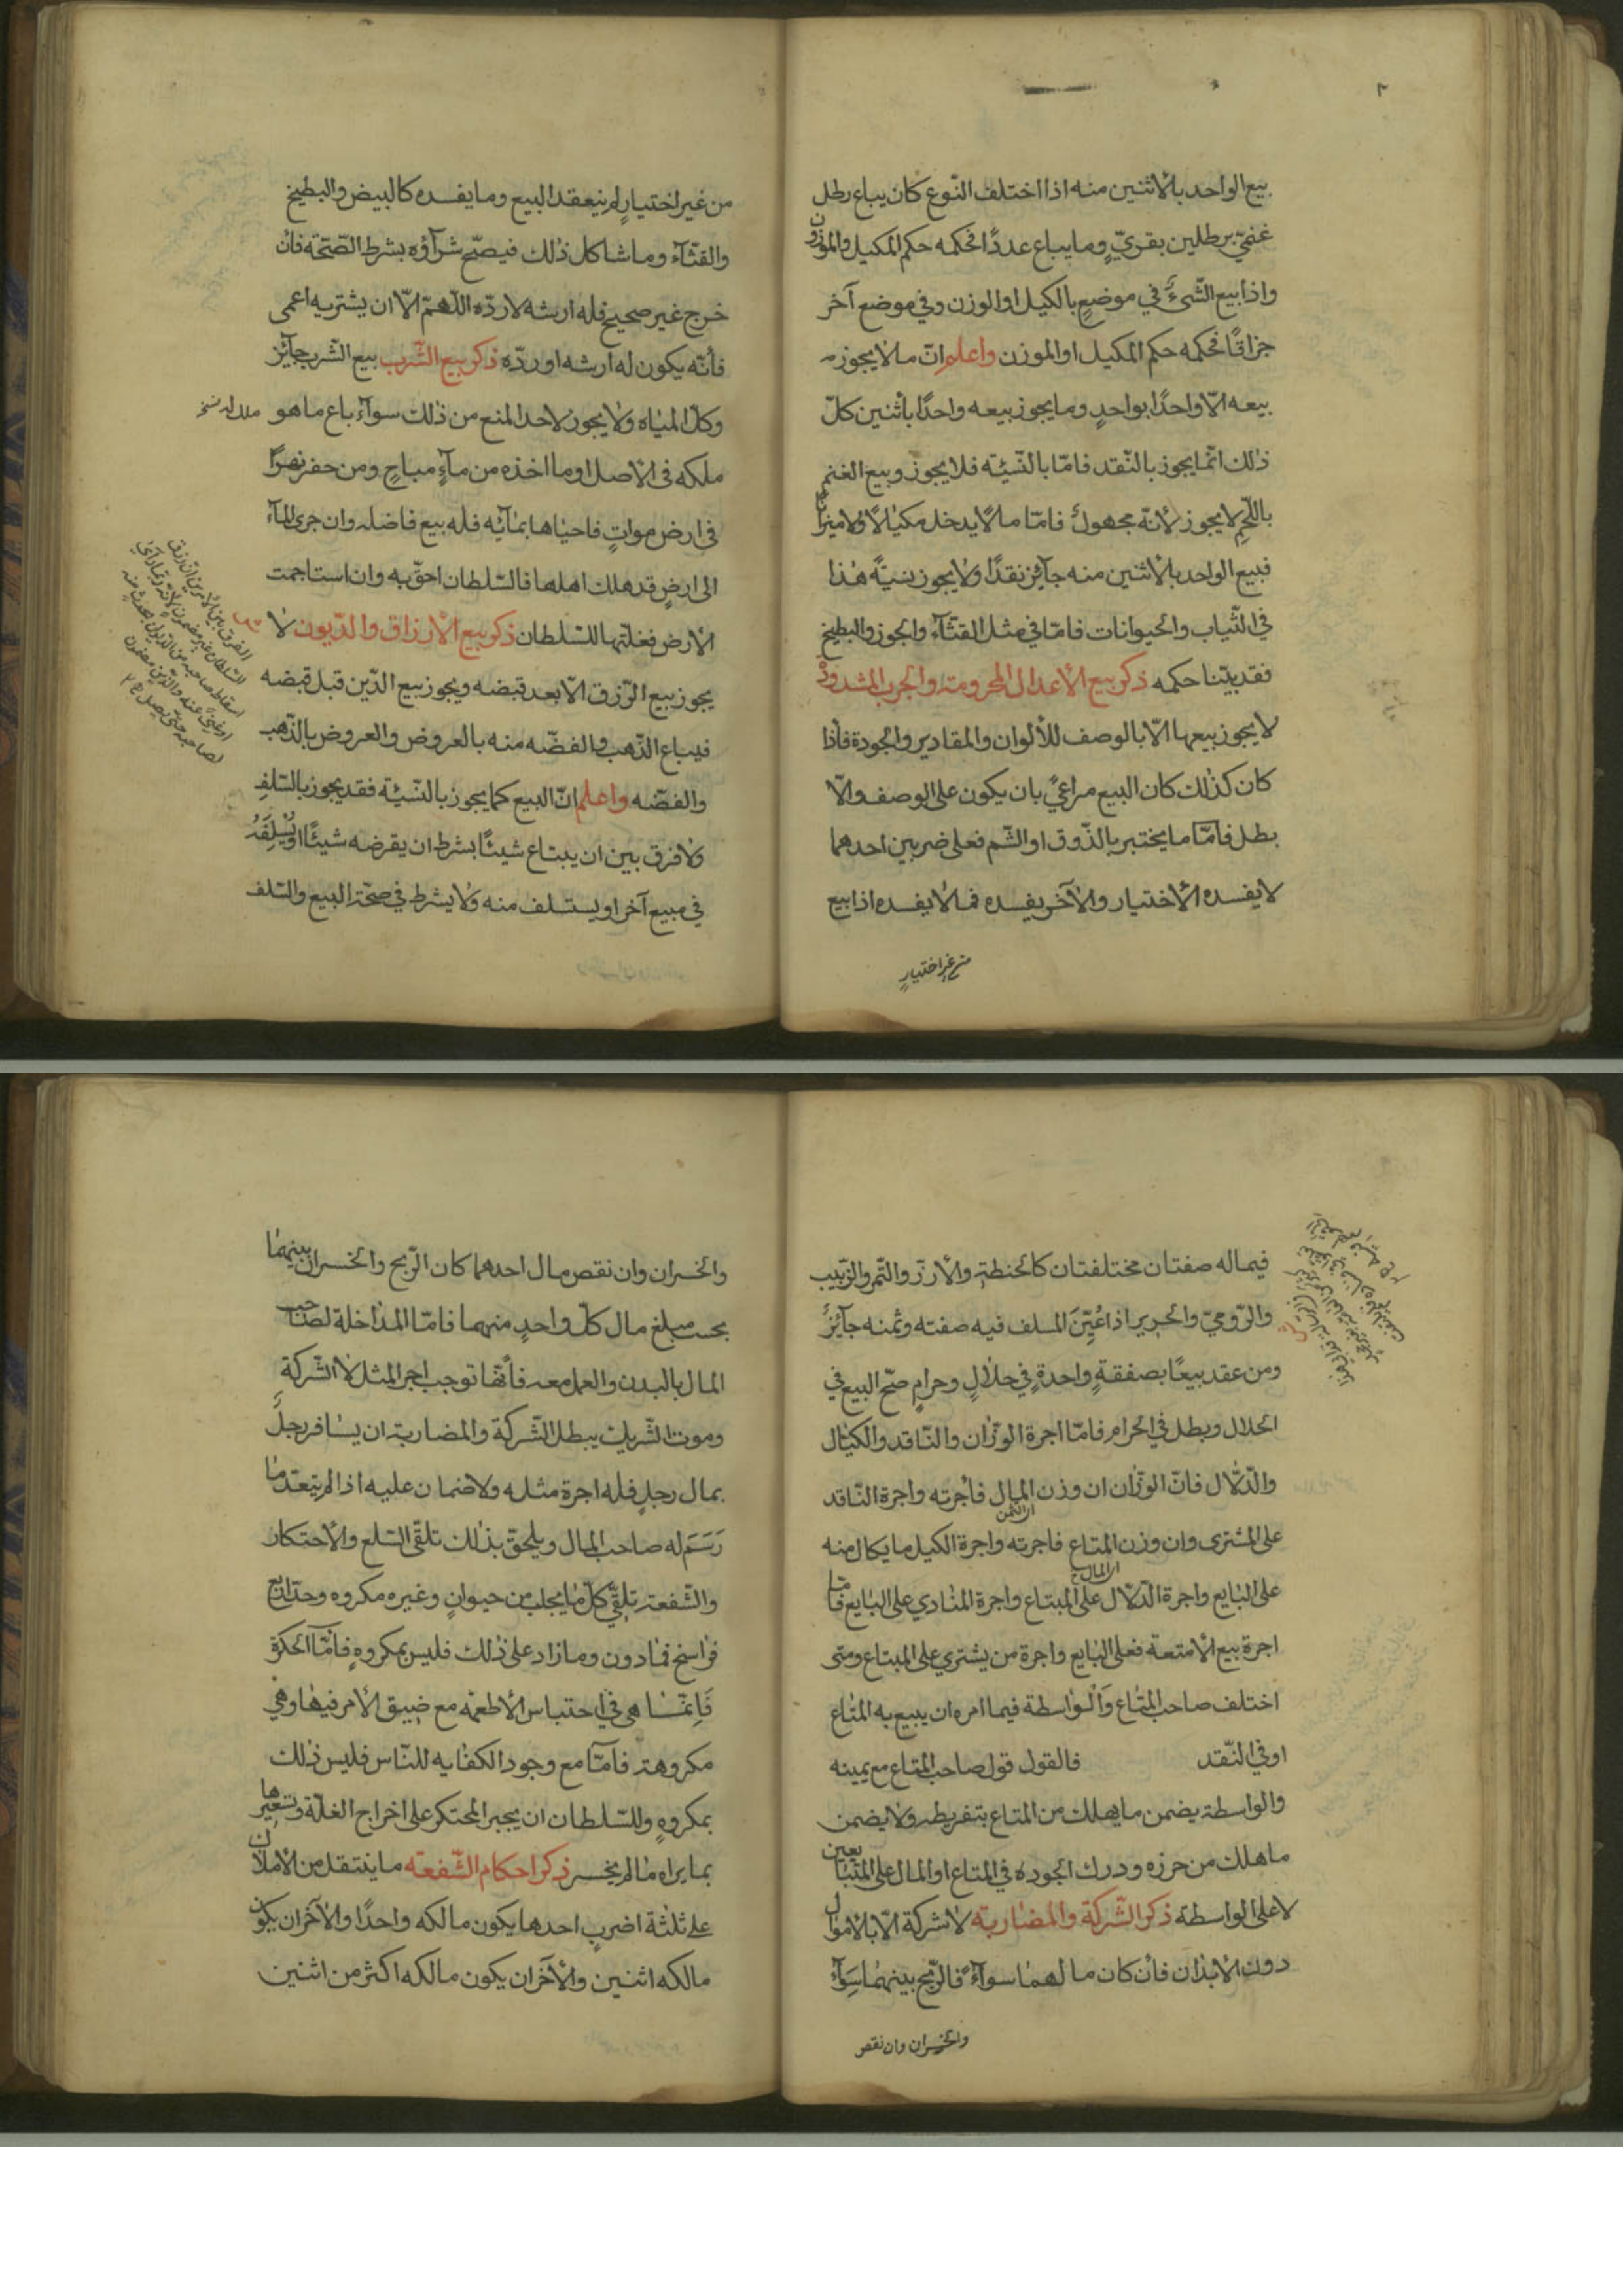 ٢
بيع الواحد بالاثنين منه اذا اختلف النّوع كان يباع رطل
غنميّ برطلين بقريّ وما يباع عددًا فحكمه حكم المكيل والموزون
واذا بيع الشّيءُ في موضعٍ بالكيل او الوزن وفي موضع آخر
جزافًا فحكمه حكم المكيل او الموزن واعلم انّ ما لا يجوز
بيعه الّا واحدًا بواحدٍ وما يجوز بيعه واحدًا بأثنين كلّ
ذلك انّما يجوز بالنّقد فامّا بالنّسيّة فلا يجوز وبيع الغنم
باللّحم لا يجوز لأنّه مجهول فامّا ما لا يدخل مكيالًا ولا ميزانًا
فبيع الواحد بالأثنين منه جآيز نقدًا ولا يجوز نسيّةً هذا
في الثّياب والحيوانات فامّا في مثل القثّآء والجوز والبطيخ
فقد بيّنا حكمه ذكر بيع الأعدال المحزومة والجرب المشدودة
لا يجوز بيعها الّا بالوصف للألوان والمقادير والجودة فأذا
كان كذلك كان البيع مراعيً بان يكون على الوصف والّا
بطل فامّا ما يختبر بالذّوق او الشّم فعلى ضربين احدهما
لا يفسده الأختيار والآخر يفسده فما لا يفسده اذا بيع
من غير اختيارٍ
من غير اختيارٍ لم ينعقد البيع وما يفسده كالبيض والبطيخ
والقثّآء وما شاكل ذلك فيصحّ شرآؤه بشرط الصّحّة فان
خرج غير صحيح فله ارشه لا ردّه اللّهمّ الّا ان يشتريه اعمى
فأنّه يكون له ارشه او ردّه ذكر بيع الشّرب بيع الشّرب جآيز
وكلّ المياه ولا يجوز لاحد المنع من ذلك سوآء باع ما هو
ملكه في الأصل او ما اخذه من مآءٍ مباحٍ ومن حفر نهرًا
في ارض مواتٍ فاحياها بمآئه فله بيع فاضله وان جرى المآء
الى ارضٍ قد هلك اهلها فالسّلطان احقّ به وان استاجمت
الأرض فغلّتها للسّلطان ذكر بيع الأرزاق والدّيون لا
يجوز بيع الرّزق الّا بعد قبضه ويجوز بيع الدّين قبل قبضه
فيباع الذّهب والفضّه منه بالعروض والعروض بالذّهب
والفضّه واعلم انّ البيع كما يجوز بالنّسيّة فقد يجوز بالسّلف
ولا فرق بين ان يبتاع شيئًا بشرط ان يقرضه شيئًا او يُسْلِفَهُ
في مبيع آخر او يستسلف منه ولا يشرط في صحّة البيع والسّلف
فيما له صفتان مختلفتان كالحنطة والأرزّ والتّمر والزّبيب
والرّوميّ والحرير اذا عُيّنَ المسلف فيه صفته وثمنه جآيزٌ
ومن عقد بيعًا بصفقةٍ واحدةٍ في حلالٍ وحرامٍ صحّ البيع في
الحلال وبطل في الحرام فامّا اجرة الوزّان والنّاقد والكيّال
والدّلّال فانّ الوزّان ان وزن المال فأجرته واجرة النّاقد
على المشترى وان وزن المتاع فاجرته واجرة الكيل ما يكال منه
على البايع واجرة الدّلّال على المبتاع واجرة المنادي على البايع فامّا
اجرة بيع الأمتعة فعلى البايع واجرة من يشتري على المبتاع ومتى
اختلف صاحب المتاع وَالْواسطة فيما امره ان يبيع به المتاع
او في النّقد فالقول قول صاحب المتاع مع يمينه
والواسطة يضمن ما يهلك من المتاع بتفريطه ولا يضمن
ما هلك من حرزه ودرك الجوده في المتاع او المال على المتبايعين
لا على الواسطة ذكر الشّركة والمضاربة لا شركة الّا بالأموال
دون الأبدان فأن كان مالهما سوآءً فالرّبح بينهما سوآء
والخسران وان نقص
والخسران وان نقص مال احدهما كان الرّبح والخسران بينهما
بحسب مبلغ مال كلّ واحدٍ منهما فامّا المداخلة لصاحب
المال بالبدن والعمل معه فأنّها توجب اجر المثل لا الشّركة
وموت الشّريك يبطل الشّركة والمضاربة ان يسافر رجلٌ
بمال رجلٍ فله اجرة مثله ولا ضمان عليه اذا لم يتعدّ ما
رَسَمَ له صاحب المال ويلحق بذلك تلقّى السّلع والأحتكار
والشّفعة تلقّي كلّ ما يجلب من حيوانٍ وغيره مكروه وحدّه اربع
فراسخ فما دون وما زاد على ذلك فليس بمكروهٍ فامّا الحكرة
فَاِنّما هي في احتباس الأطعمه مع ضيق الأمر فيها وهي
مكروهة فامّا مع وجود الكفايه للنّاس فليس ذلك
بمكروهٍ وللسّلطان ان يجبر المحتكر على اخراج الغلّة وتسعيرها
بما يراه ما لم يخسر ذكر احكام الشّفعة ما ينتقل من الأملاك
على ثلثة اضربٍ احدها يكون مالكه واحدًا والآخران يكون
مالكه اثنين والآخران يكون مالكه اكثر من اثنين